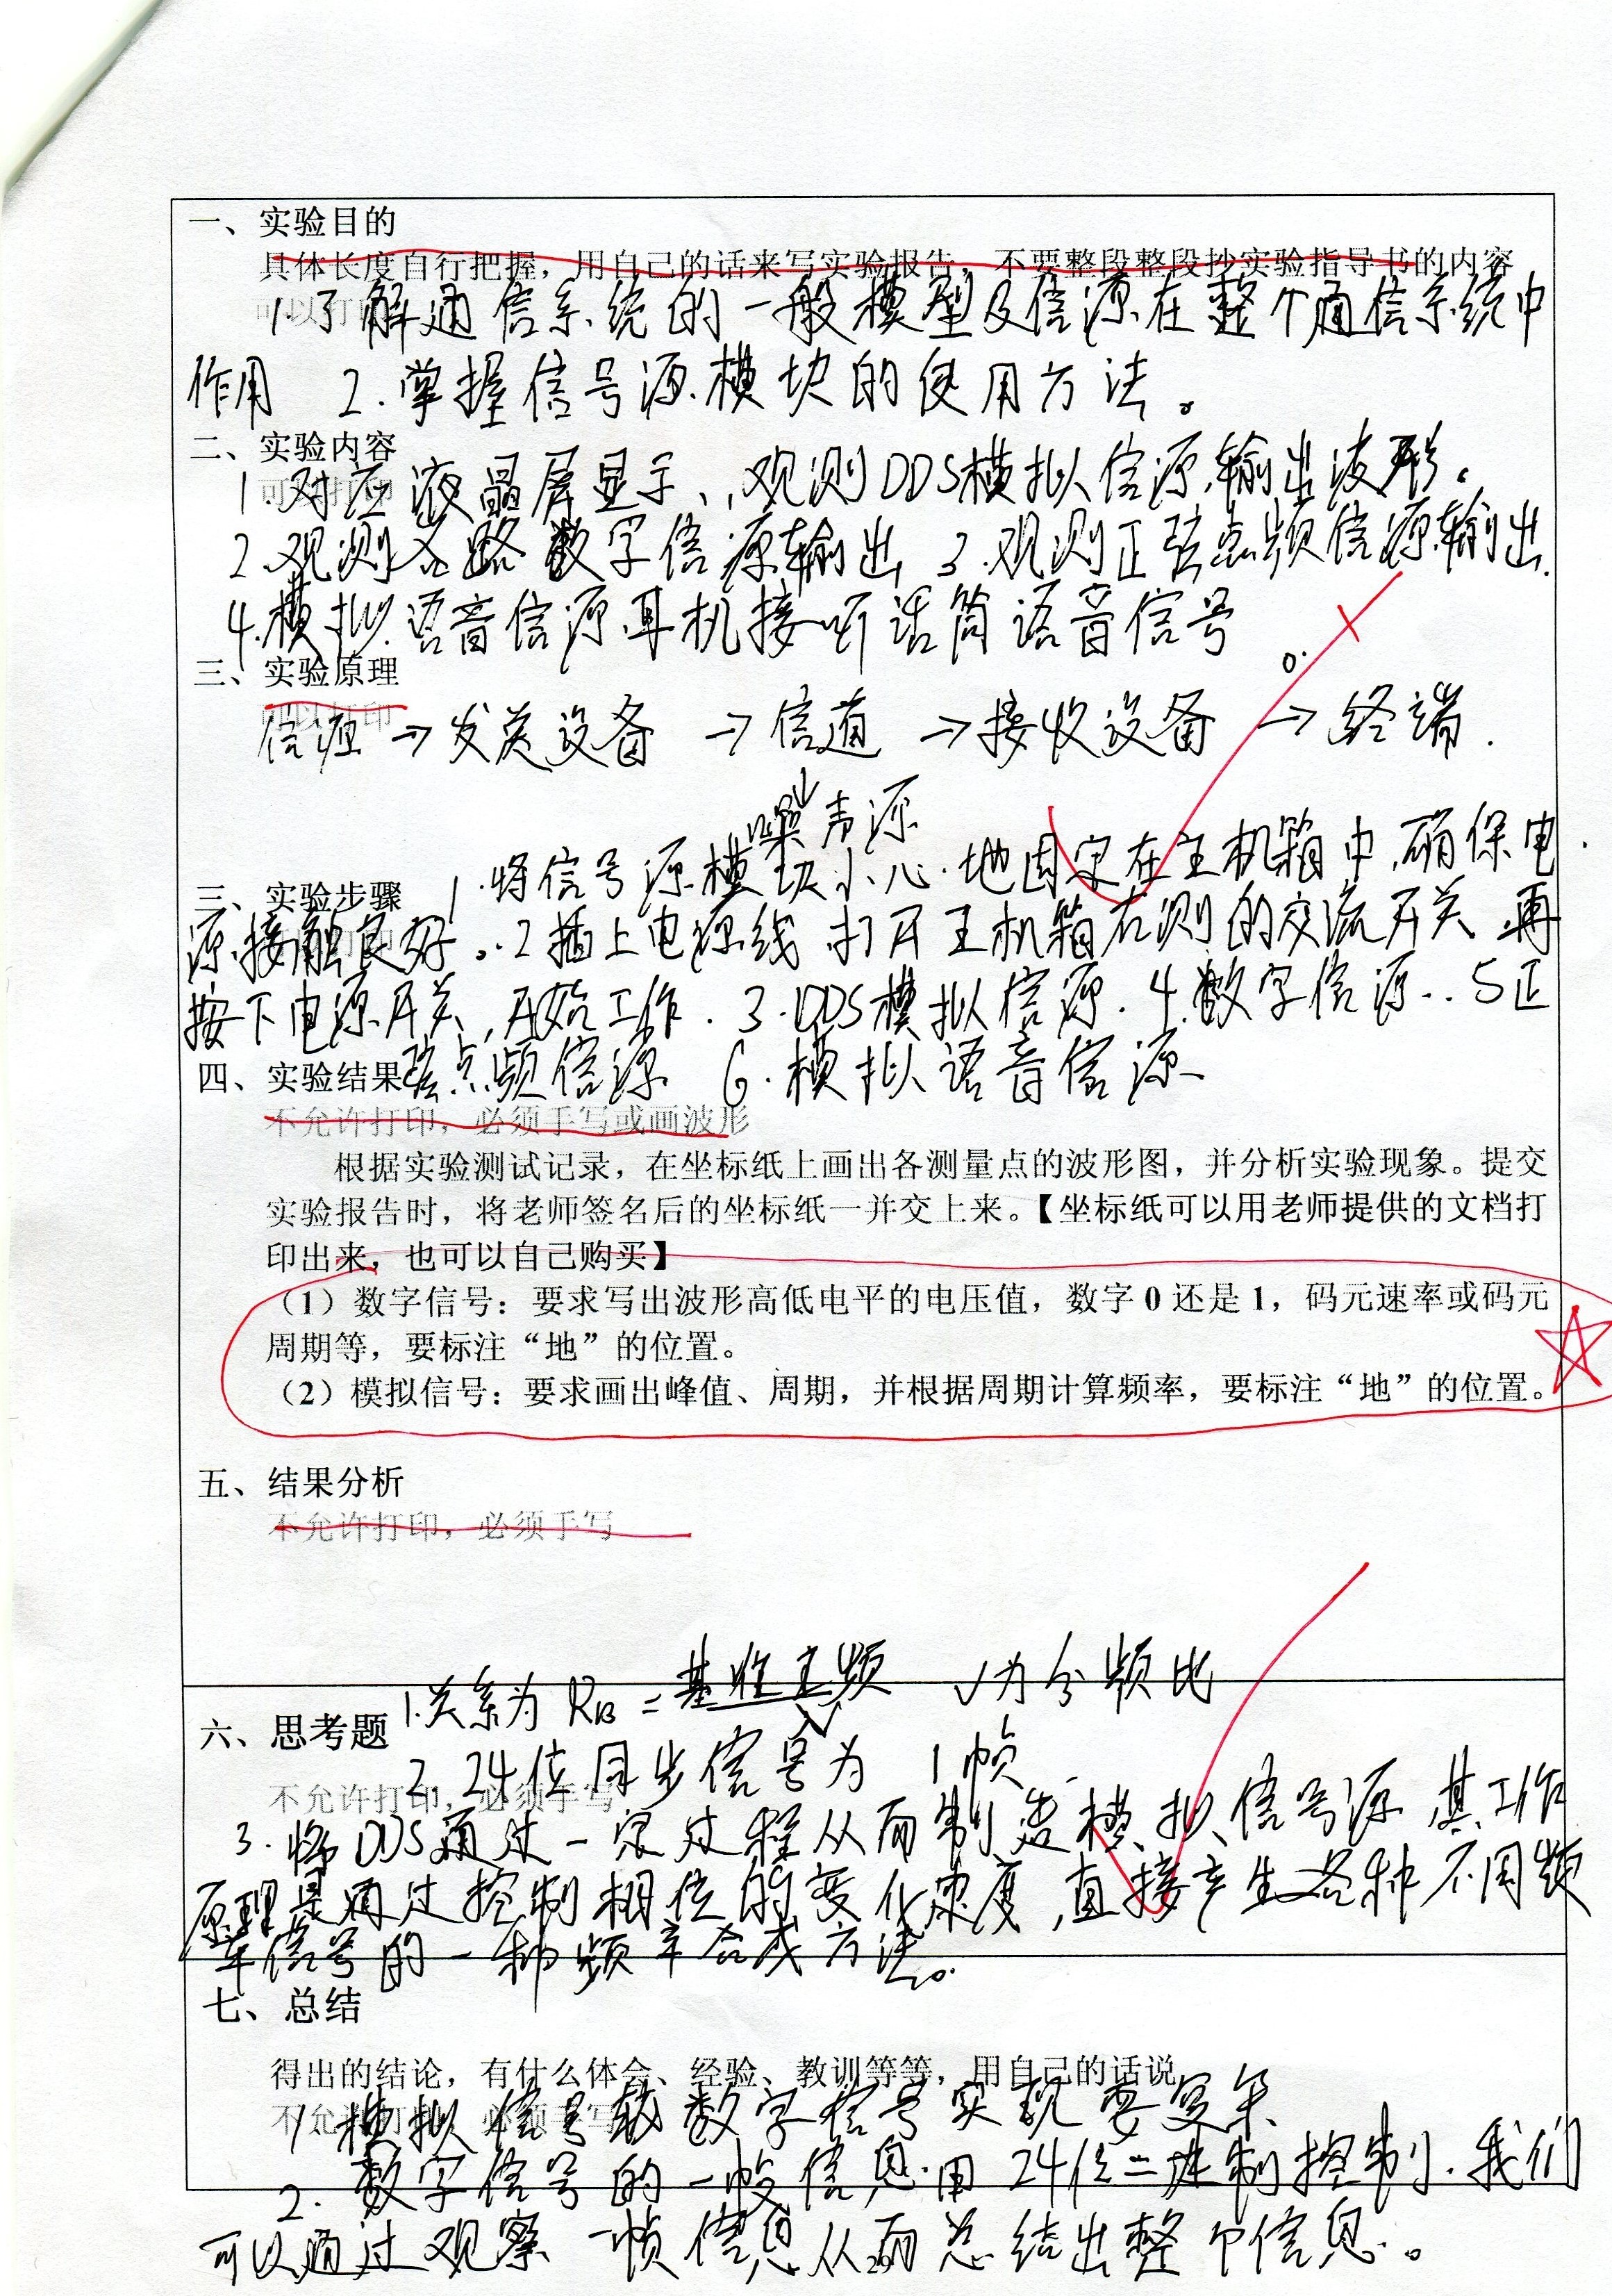 一、实验目的
具体长度自行把握，用自己的话来写实验报告，不要整段整段抄实验指导书的内容
可以打印
1.了解通信系统的一般模型及信源在整个通信系统中
作用 2.掌握信号源模块的使用方法。
二、实验内容
可以打印
1.对应液晶屏显示、观测DDS模拟信源输出波形。
2.观测各路数字信源输出 3.观测正弦点频信源输出.
4.模拟语音信源耳机接听话筒语音信号
三、实验原理
可以打印
信源 → 发送设备 → 信道 → 接收设备 → 终端.
噪声源
三、实验步骤 1.将信号源模块小心地固定在主机箱中,确保电
源接触良好。2插上电源线 打开主机箱右测的交流开关 再
按下电源开关,开始工作. 3.DDS模拟信源. 4.数字信源.. 5正
四、实验结果 弦点频信源 6.模拟语音信源
不允许打印，必须手写或画波形
根据实验测试记录，在坐标纸上画出各测量点的波形图，并分析实验现象。提交
实验报告时，将老师签名后的坐标纸一并交上来。【坐标纸可以用老师提供的文档打
印出来，也可以自己购买】
（1）数字信号：要求写出波形高低电平的电压值，数字 0 还是 1，码元速率或码元
周期等，要标注“地”的位置。
（2）模拟信号：要求画出峰值、周期，并根据周期计算频率，要标注“地”的位置。
五、结果分析
不允许打印，必须手写
1.关系为 RB = 基准主频 / N N为分频比
六、思考题
2. 24位同步信号为 1帧.
不允许打印，必须手写
3. 将DDS通过一定过程从而制造模拟信号源 其工作
原理是通过控制相位的变化速度,直接产生各种不同频
率信号的一种频率合成方法。
七、总结
得出的结论，有什么体会、经验、教训等等，用自己的话说
不允许打印，必须手写
1.模拟信号较数字信号实现要复杂
2. 数字信号的一帧信息用 24位二进制控制. 我们
可以通过观察一帧信息从而总结出整个信息。